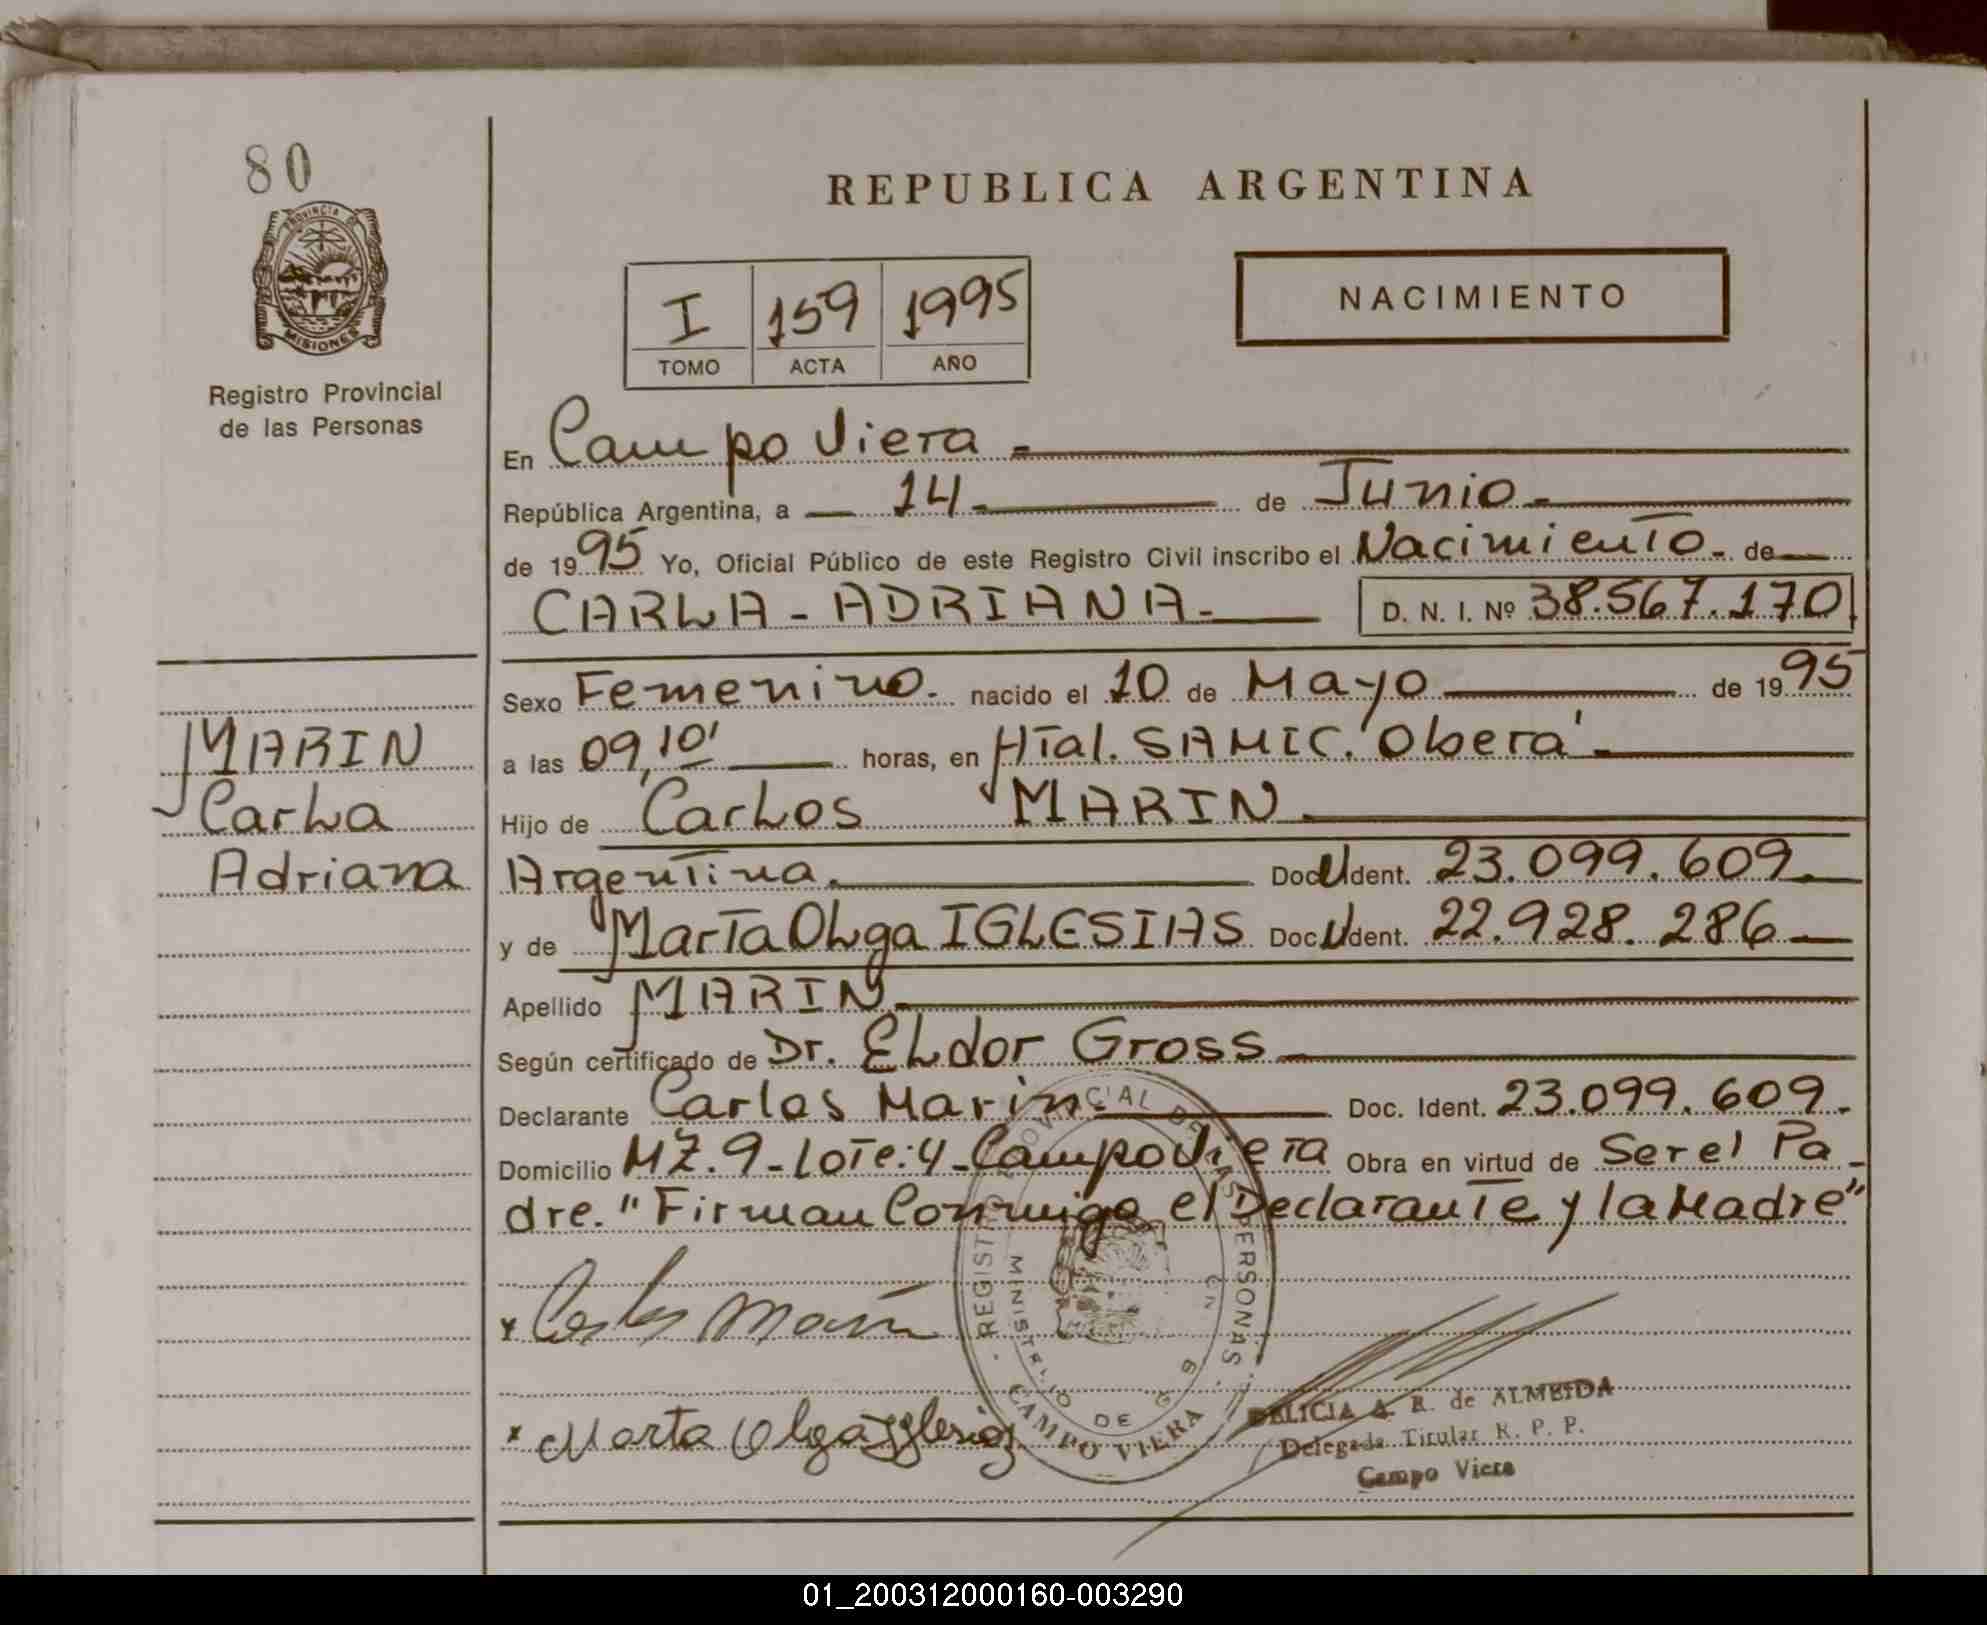 80
PROVINCIA DE
MISIONES
Registro Provincial
de las Personas
REPUBLICA ARGENTINA
I 159 1995
TOMO ACTA AÑO
NACIMIENTO
En Campo Viera -
República Argentina, a - 14 - de Junio -
de 1995 Yo, Oficial Público de este Registro Civil inscribo el Nacimiento - de
CARLA - ADRIANA - D. N. I. Nº 38.567.170
Sexo Femenino. nacido el 10 de Mayo de 1995
a las 09,10' horas, en Htal. SAMIC. Oberá -
Hijo de Carlos MARIN
Argentina. Doc. Ident. 23.099.609.
y de Marta Olga IGLESIAS Doc. Ident. 22.928.286
Apellido MARIN
Según certificado de Dr. Eldor Gross
Declarante Carlos Marin. Doc. Ident. 23.099.609.
Domicilio MZ. 9 - Lote: 4 - Campo Viera Obra en virtud de Ser el Pa
dre. "Firman Conmigo el Declarante y la Madre"
MARIN
Carla
Adriana
x Carlos Marin
x Marta Olga Iglesias
REGISTRO PROVINCIAL DE LAS PERSONAS
MINISTERIO DE G
CAMPO VIERA
DELICIA A. R. de ALMEIDA
Delegada Titular R. P. P.
Campo Viera
01_200312000160-003290